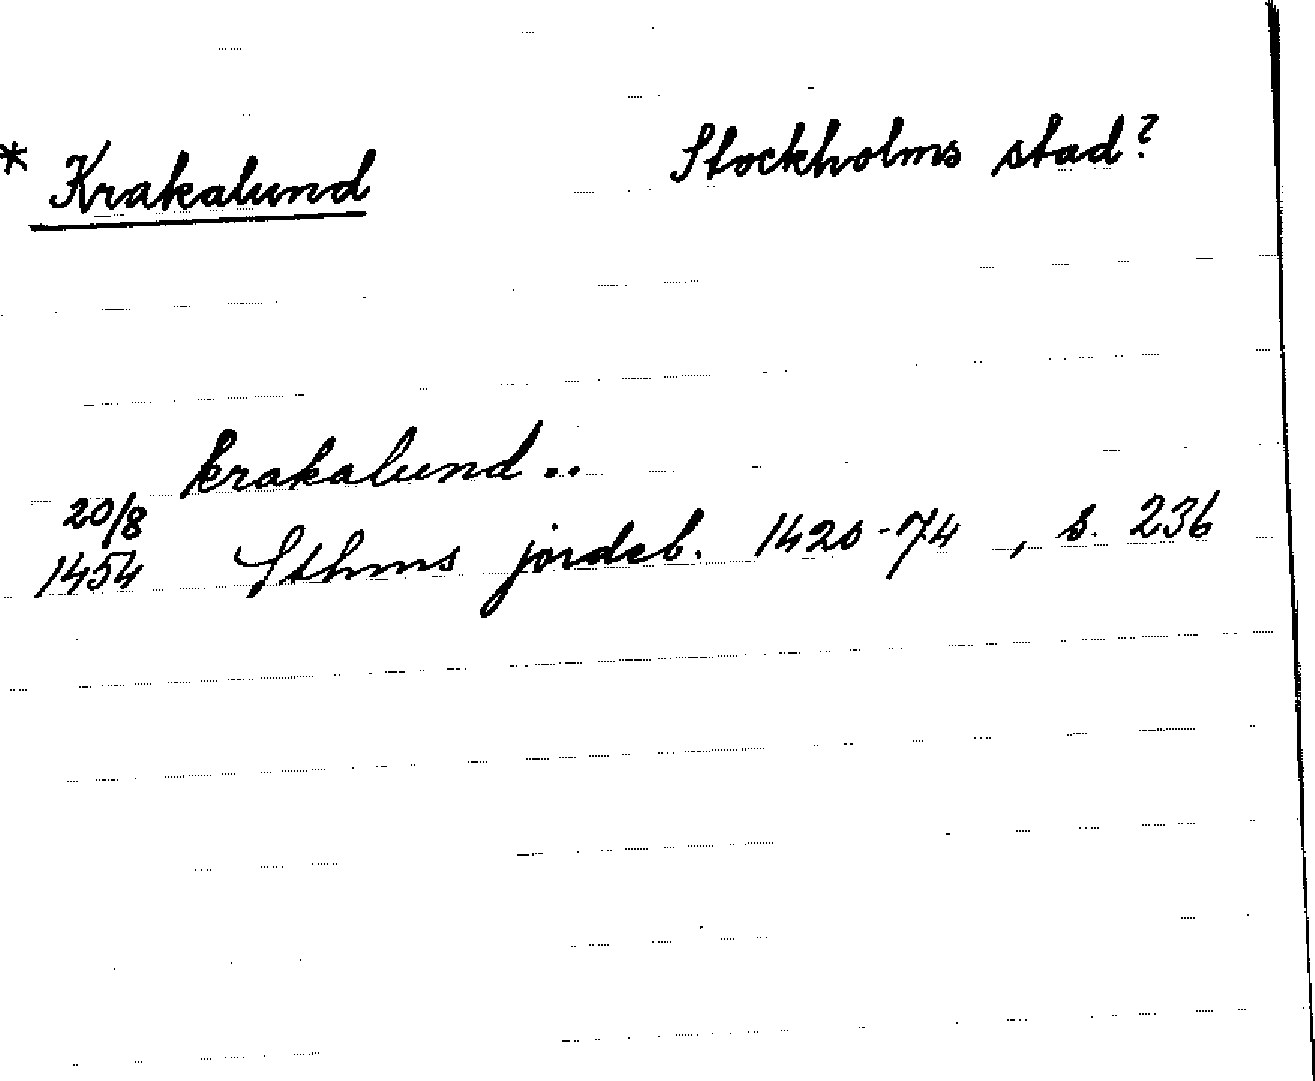 * Krakalund Stockholms stad?
krakalund..
20/8
1454 Sthms jordeb. 1420-74, s. 236